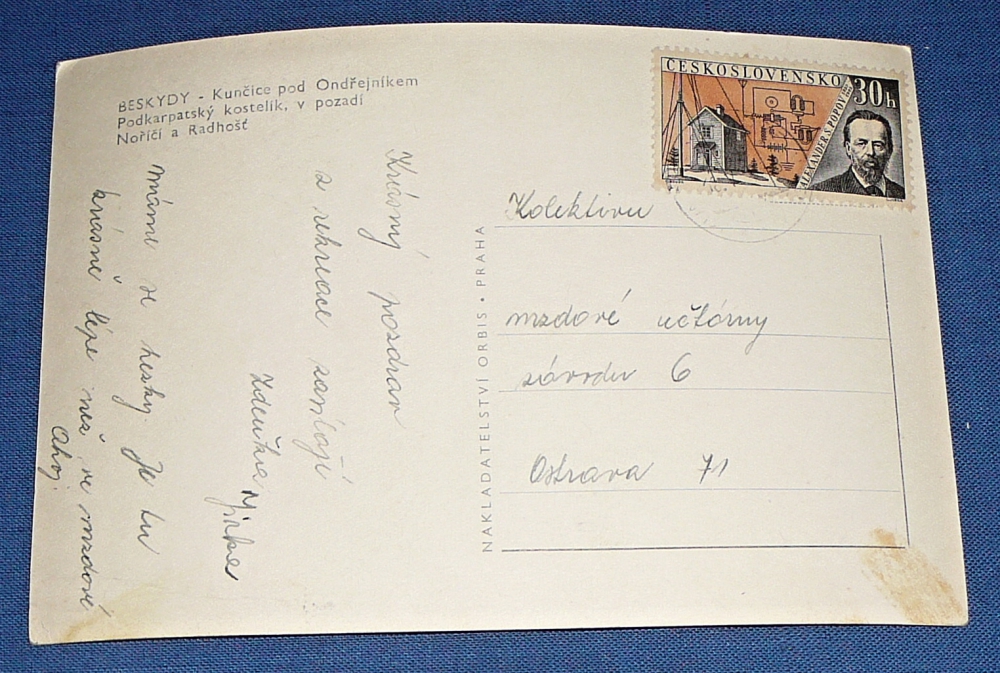 BESKYDY - Kunčice pod Ondřejníkem
Podkarpatský kostelík, v pozadí
Noříčí a Radhošť
ČESKOSLOVENSKO
30h
ALEXANDER S. POPOV
Krásný pozdrav
z rekreace zasílají
Zdeňka
Máme se hezky. Je tu
krásně lépe než ve mzdové
Ahoj.
NAKLADATELSTVÍ ORBIS • PRAHA
Kolektivu
mzdové účtárny
závodu 6
Ostrava 71